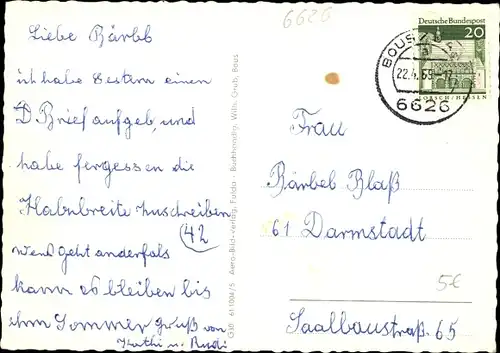 6626
Liebe Bärbl
ich habe Gestern einen
D Brief aufgeb, und
habe fergessen die
Habnbreite zuschreiben
42
wend geht anderfals
kann es bleiben bis
ihm Sommer gruß von
Kathi u. Rudi
G 58 61 1004/5 Aero-Bild-Verlag, Fulda - Buchhandlg. Wilh. Gruth, Bous
Deutsche Bundespost
20
LORSCH/HESSEN
BOUS
22.4.69
6626
Frau
Bärbel Blaß
61 Darmstadt
Saalbaustraße 65
5€